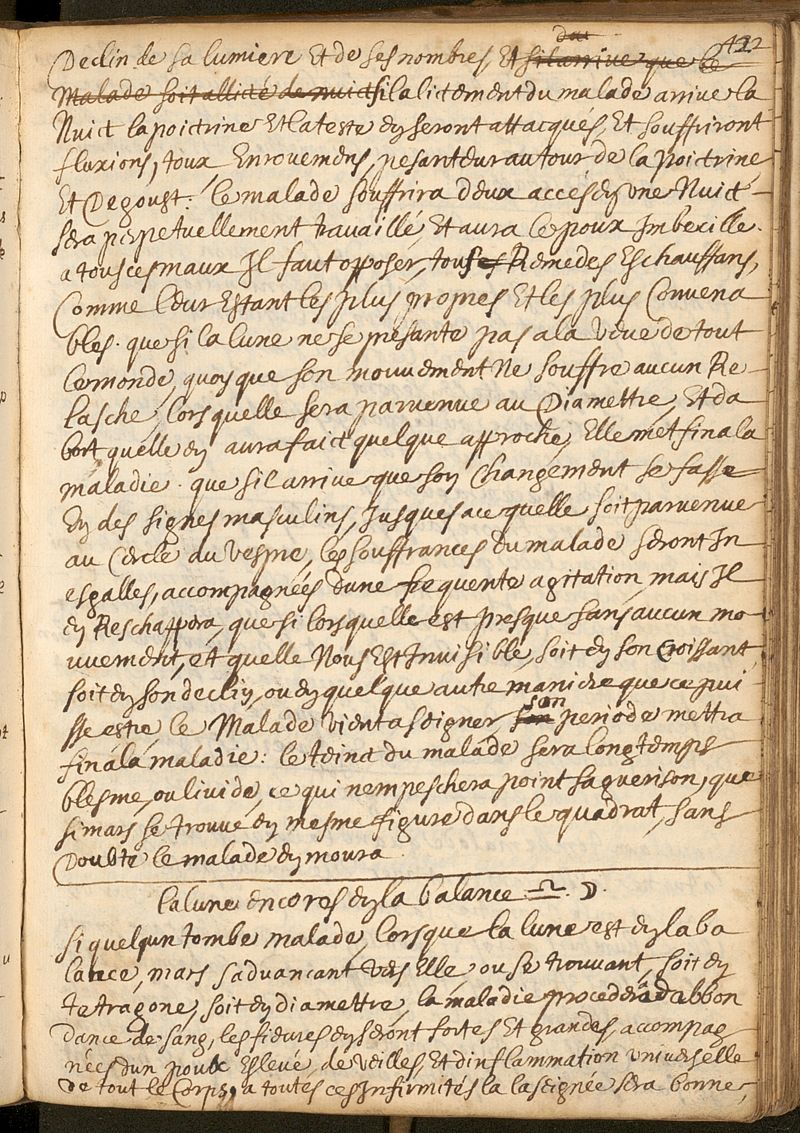 422
Declin de sa lumiere Et de ses nombres Et sil arrive que le
Malade soit allicté de nuict sil alictement du malade arrive la
Nuict la poictrine Et la teste en seront attacqués, Et souffriront
fluxions, toux Enrouemens, pesanteur autour de la poictrine
Et Degoust: le malade souffrira deux accés en une Nuict
sera perpetuellement travaillé Et aura le poux Imbecille.
a tous ces maux Il faut opposer, tous Remedes Eschauffans,
Comme leur Estant les plus propres Et les plus Convena
bles. que si la lune ne se presante pas a la veue de tout
le monde, quoy que son mouvement Ne souffre aucun Re
lasche, lors quelle sera parvenue au Diamettre, Et da
bort quelle en aura faict quelque approche, Elle met fin a la
maladie. que sil arrive que son Changement se fasse
En des signes masculins, Jusques a ce quelle soit parvenue
au Cercle du vespre, les souffrances du malade seront In
esgalles, accompagnées dune frequente agitation mais Il
en Reschappera, que si lors quelle est presque sans aucun mo
uvement, et quelle Nous Est Invisible, soit en son Croissant,
soit en son declin, ou en quelque autre maniere que ce pui
sse estre le Malade vient a seigner son periode mettra
fin a la maladie: le teinct du malade sera longtemps
blesme, ou livide, ce qui nempeschera point sa guerison, que
si mars se trouve en mesme figure dans le quadrat, sans
Doubte le malade en moura.
la lune encores en la balance ♎. ☽.
si quelqun tombe malade, lorsque la lune est en la ba
lance, mars sadvancant vers Elle, ou se trouvant, soit en
tetragone, soit en diamettre, la maladie procedera dabbon
dance de sang, les fievres en seront fortes Et grandes accompag
nées dun poulx Eslevé, de veilles Et dinflammation universelle
de tout le Corps, a toutes ces Infirmités la la seignée sera bonne,